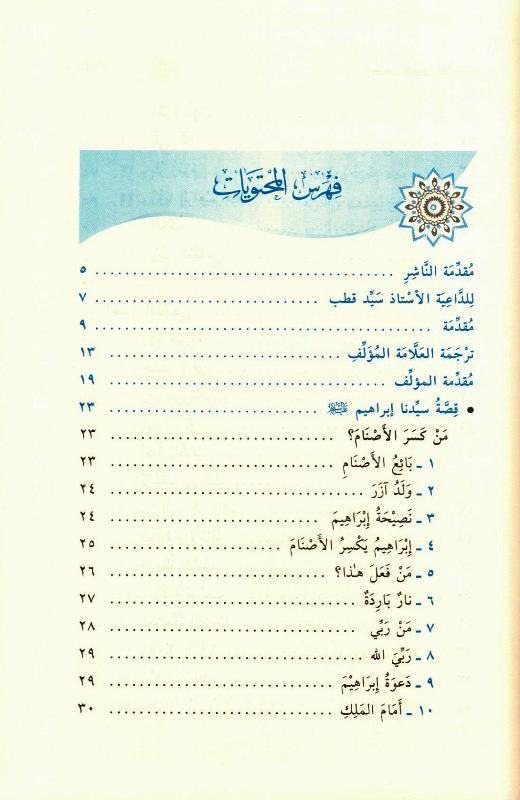 فِهْرِس المُحْتَوَيَاتِ
مُقدِّمَة النَّاشِرِ ...................................... ٥
لِلدَّاعِيَة الأسْتاذ سَيِّد قطب ...................................... ٧
مُقدِّمَة ...................................... ٩
ترْجَمَة العَلَّامَة المُؤَلِّفِ ...................................... ١٣
مُقدِّمة المؤلِّف ...................................... ١٩
• قِصَّةُ سيِّدنا إبراهيم ﷺ ...................................... ٢٣
مَنْ كَسَرَ الأَصْنَامَ؟ ...................................... ٢٣
١ ـ بَائِعُ الأَصْنَامِ ...................................... ٢٣
٢ ـ وَلَدُ آزَرَ ...................................... ٢٤
٣ ـ نَصِيْحَةُ إِبْرَاهِيمَ ...................................... ٢٤
٤ ـ إِبْرَاهِيمُ يَكْسِرُ الأَصْنَامَ ...................................... ٢٥
٥ ـ مَنْ فَعَلَ هٰذا؟ ...................................... ٢٦
٦ ـ نارٌ بَارِدَةٌ ...................................... ٢٧
٧ ـ مَنْ رَبِّي ...................................... ٢٨
٨ ـ رَبِّيَ الله ...................................... ٢٩
٩ ـ دَعوَةُ إِبرَاهِيْمَ ...................................... ٢٩
١٠ ـ أَمَامَ المَلِكِ ...................................... ٣٠